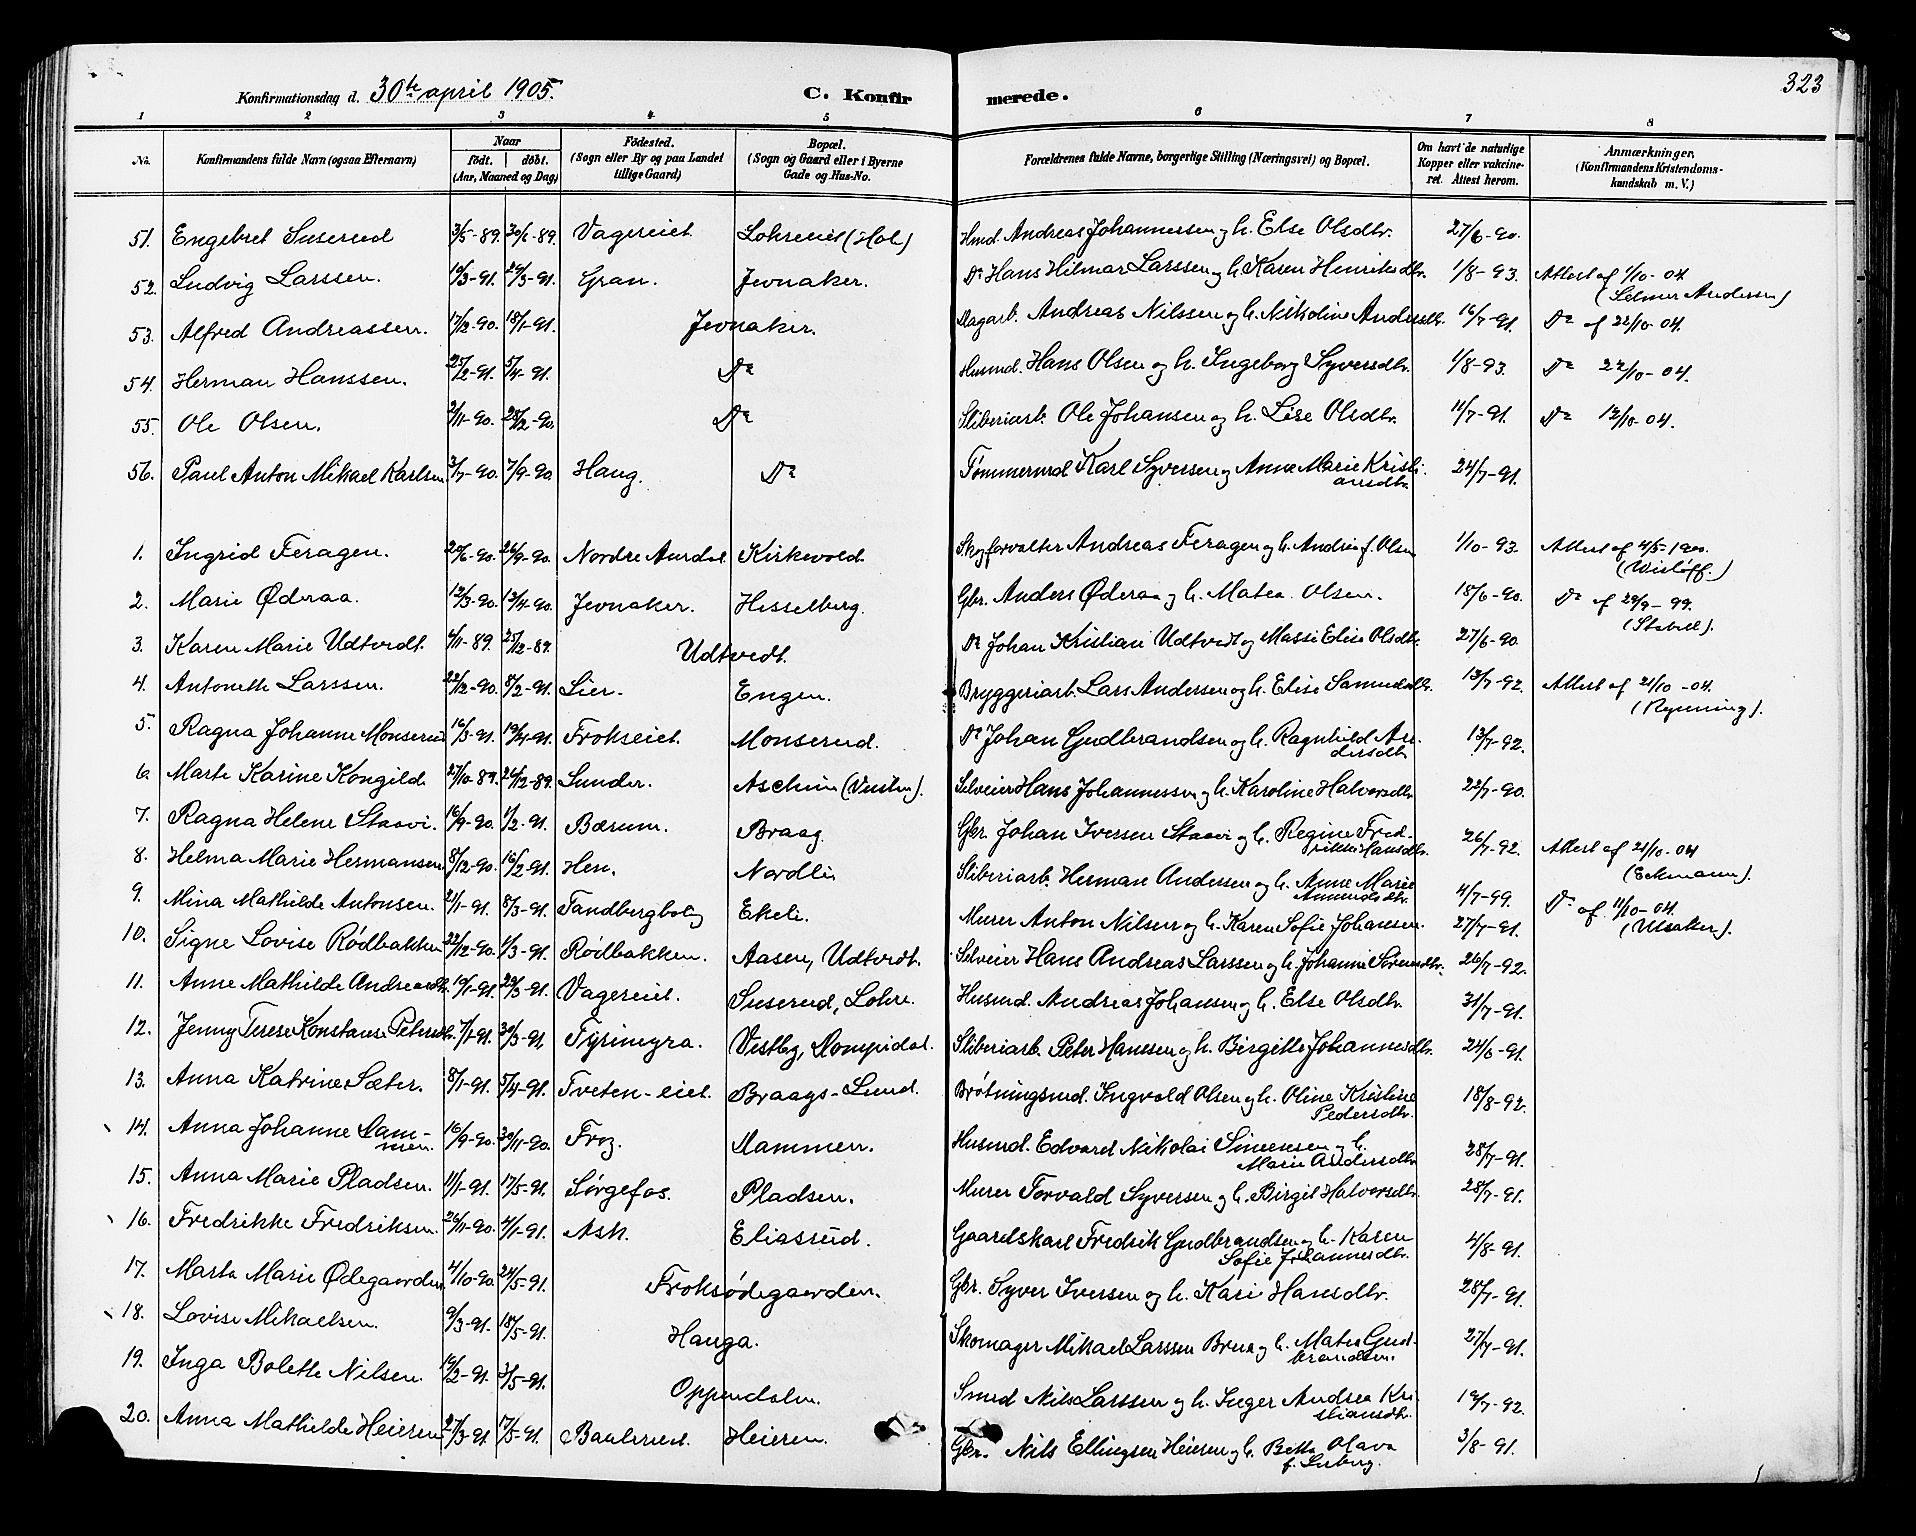 Konfirmationsdag d. 30te april 1905. C. Konfirmerede. 323
1 2 3 4 5 6 7 8
No. Konfirmandens fulde Navn (ogsaa Efternavn) Naar født. døbt. (Aar, Maaned og Dag) Fødested. (Sogn eller By og paa Landet tillige Gaard) Bopæl. (Sogn og Gaard eller i Byerne Gade og Hus-No. Forældrenes fulde Navne, borgerlige Stilling (Næringsvei) og Bopæl. Om havt de naturlige Kopper eller vakcineret. Attest herom. Anmærkninger, (Konfirmandens Kristendomskundskab m. V.)
51. Engebret Suserud 3/5-89. 30/6-89. Vagereiet Lohreiet (Hol) Hmd. Andreas Johannessen og h. Else Olsdtr. 27/6-90.
52. Ludvig Larssen. 10/3-91. 29/3-91. Gran. Jevnaker. Do Hans Hilmar Larssen og h. Karen Henriksdtr. 1/8-93. Attest af 1/10-04 (Selmer Andersen)
53. Alfred Andreassen. 17/12-90. 18/1-91. Jevnaker. Dagarb. Andreas Nilssen og h. Nikoline Andersdtr. 16/7-91. Do af 22/10-04.
54. Herman Hanssen. 25/2-91. 5/4-91. Do Husmd. Hans Olsen og h. Ingeborg Syversdtr. 1/8-93. Do 22/10-04.
55. Ole Olsen. 2/11-90. 28/12-90. Do Sliberiarb. Ole Johansen og h. Lise Olsdtr. 11/7-91. Do 12/10-04.
56. Paul Anton Mikael Karlsen 3/7-90. 7/9-90. Haug. Do Tømmermd Karl Syversen og Anne Marie Kristiansdtr. 24/7-91.
1. Ingrid Feragen. 20/6-90. 26/9-90. Nordre Aurdal Kirkevold. Skogforvalter Andreas Feragen og h. Andrea f. Olsen 1/10-93. Attest af 4/5-1900. (Wisløff.)
2. Marie Øderaa. 12/3-90. 13/4-90. Jevnaker. Hesselberg. Gbr. Anders Øderaa og h. Matea Olsen. 18/6-90. Do af 29/9-99. (Stabell).
3. Karen Marie Udtvedt. 4/11-89. 25/12-89. Udtvedt. Do Johan Kristian Udtvedt og Massi Elise Olsdtr. 27/6-90
4. Antonette Larssen. 22/12-90. 8/2-91. Lier. Engen. Bryggeriarb. Lars Andersen og h. Elise Samuelsdtr. 13/7-92. Attest af 21/10-04. (Rynning).
5. Ragna Johanne Monserud 16/3-91. 19/4-91. Frokseiet. Monserud. Do Johan Gudbrandsen og h. Ragnhild Andersdtr. 13/7-92.
6. Marte Karine Kongilde 27/10-89. 26/12-89. Lunder. Aschim (Veslen). Selveier Hans Johannessen og h. Karoline Halvorsdtr. 22/7-90.
7. Ragna Helene Staavi. 16/9-90. 1/2-91. Bærum. Braag. Gbr. Johan Iversen Staavi og h. Regine Fredrikke Hansdtr. 26/7-92. Attest af 21/10-04 (Eckmann).
8. Helma Marie Hermansen 8/12-90. 16/2-91. Hen. Nordli Sliberiarb. Herman Andersen og h. Anne Marie Amundsdtr. 4/7-99. Do af 11/10-04. (Ulsaker).
9. Mina Mathilde Antonsen. 2/1-91. 8/3-91. Tandbergbolig Ekeli. Murer Anton Nilsen og h. Karen Sofie Johansen. 27/7-91.
10. Signe Lovise Rødbakken 22/12-90. 1/3-91. Rødbakken. Aasen, Udtvedt. Selveier Hans Andreas Larssen og h. Johanne Sørensdtr. 26/7-92.
11. Anne Mathilde Andreasdtr. 19/1-91. 29/3-91. Vagereiet. Suserud, Lohre. Husmd. Andreas Johansen og h. Else Olsdtr. 31/7-91.
12. Jenny Terese Konstanse Petersdtr. 7/1-91. 30/3-91. Tyrimyra. Vestby, Dompidal. Sliberiarb. Peter Hanssen og h. Birgitte Johannesdtr. 24/6-91.
13. Anna Katrine Sæter. 8/1-91. 5/4-91. Tveten-eiet. Braags-Lund. Brøtningsmd. Ingvald Olsen og h. Oline Kristine Pedersdtr. 18/8-92.
14. Anna Johanne Dammen. 16/9-90. 30/11-90. Frog. Dammen. Husmd. Edvard Nikolai Simensen og h. Marie Andersdtr. 28/7-91.
15. Anna Marie Pladsen. 11/1-91. 17/5-91. Sørgefos. Pladsen. Murer Torvald Syversen og h. Birgit Halvorsdtr. 28/7-91.
16. Fredrikke Fredriksen. 26/11-90. 4/1-91. Ask. Eliasrud. Gaardskarl Fredrik Gudbrandsen og h. Karen Sofie Johannesdtr. 4/8-91.
17. Marta Marie Ødegaarden 4/10-90. 24/5-91. Froksødegaarden. Gbr. Syver Iversen og h. Kari Hansdtr. 28/7-91.
18. Lovise Mikaelsen. 9/3-91. 18/5-91. Hauga. Skomager Mikael Larssen Brua og h. Matea Gudbrandsen. 27/7-91.
19. Inga Bolette Nilsen. 19/2-91. 3/5-91. Oppendalen. Smed Nils Larssen og h. Inger Andrea Kristiansdtr. 19/7-92.
20. Anna Mathilde Heieren 27/3-91. 17/5-91. Baalerud. Heieren. Gbr. Nils Ellingsen Heieren og h. Betta Olava f. Leberg. 3/8-91.